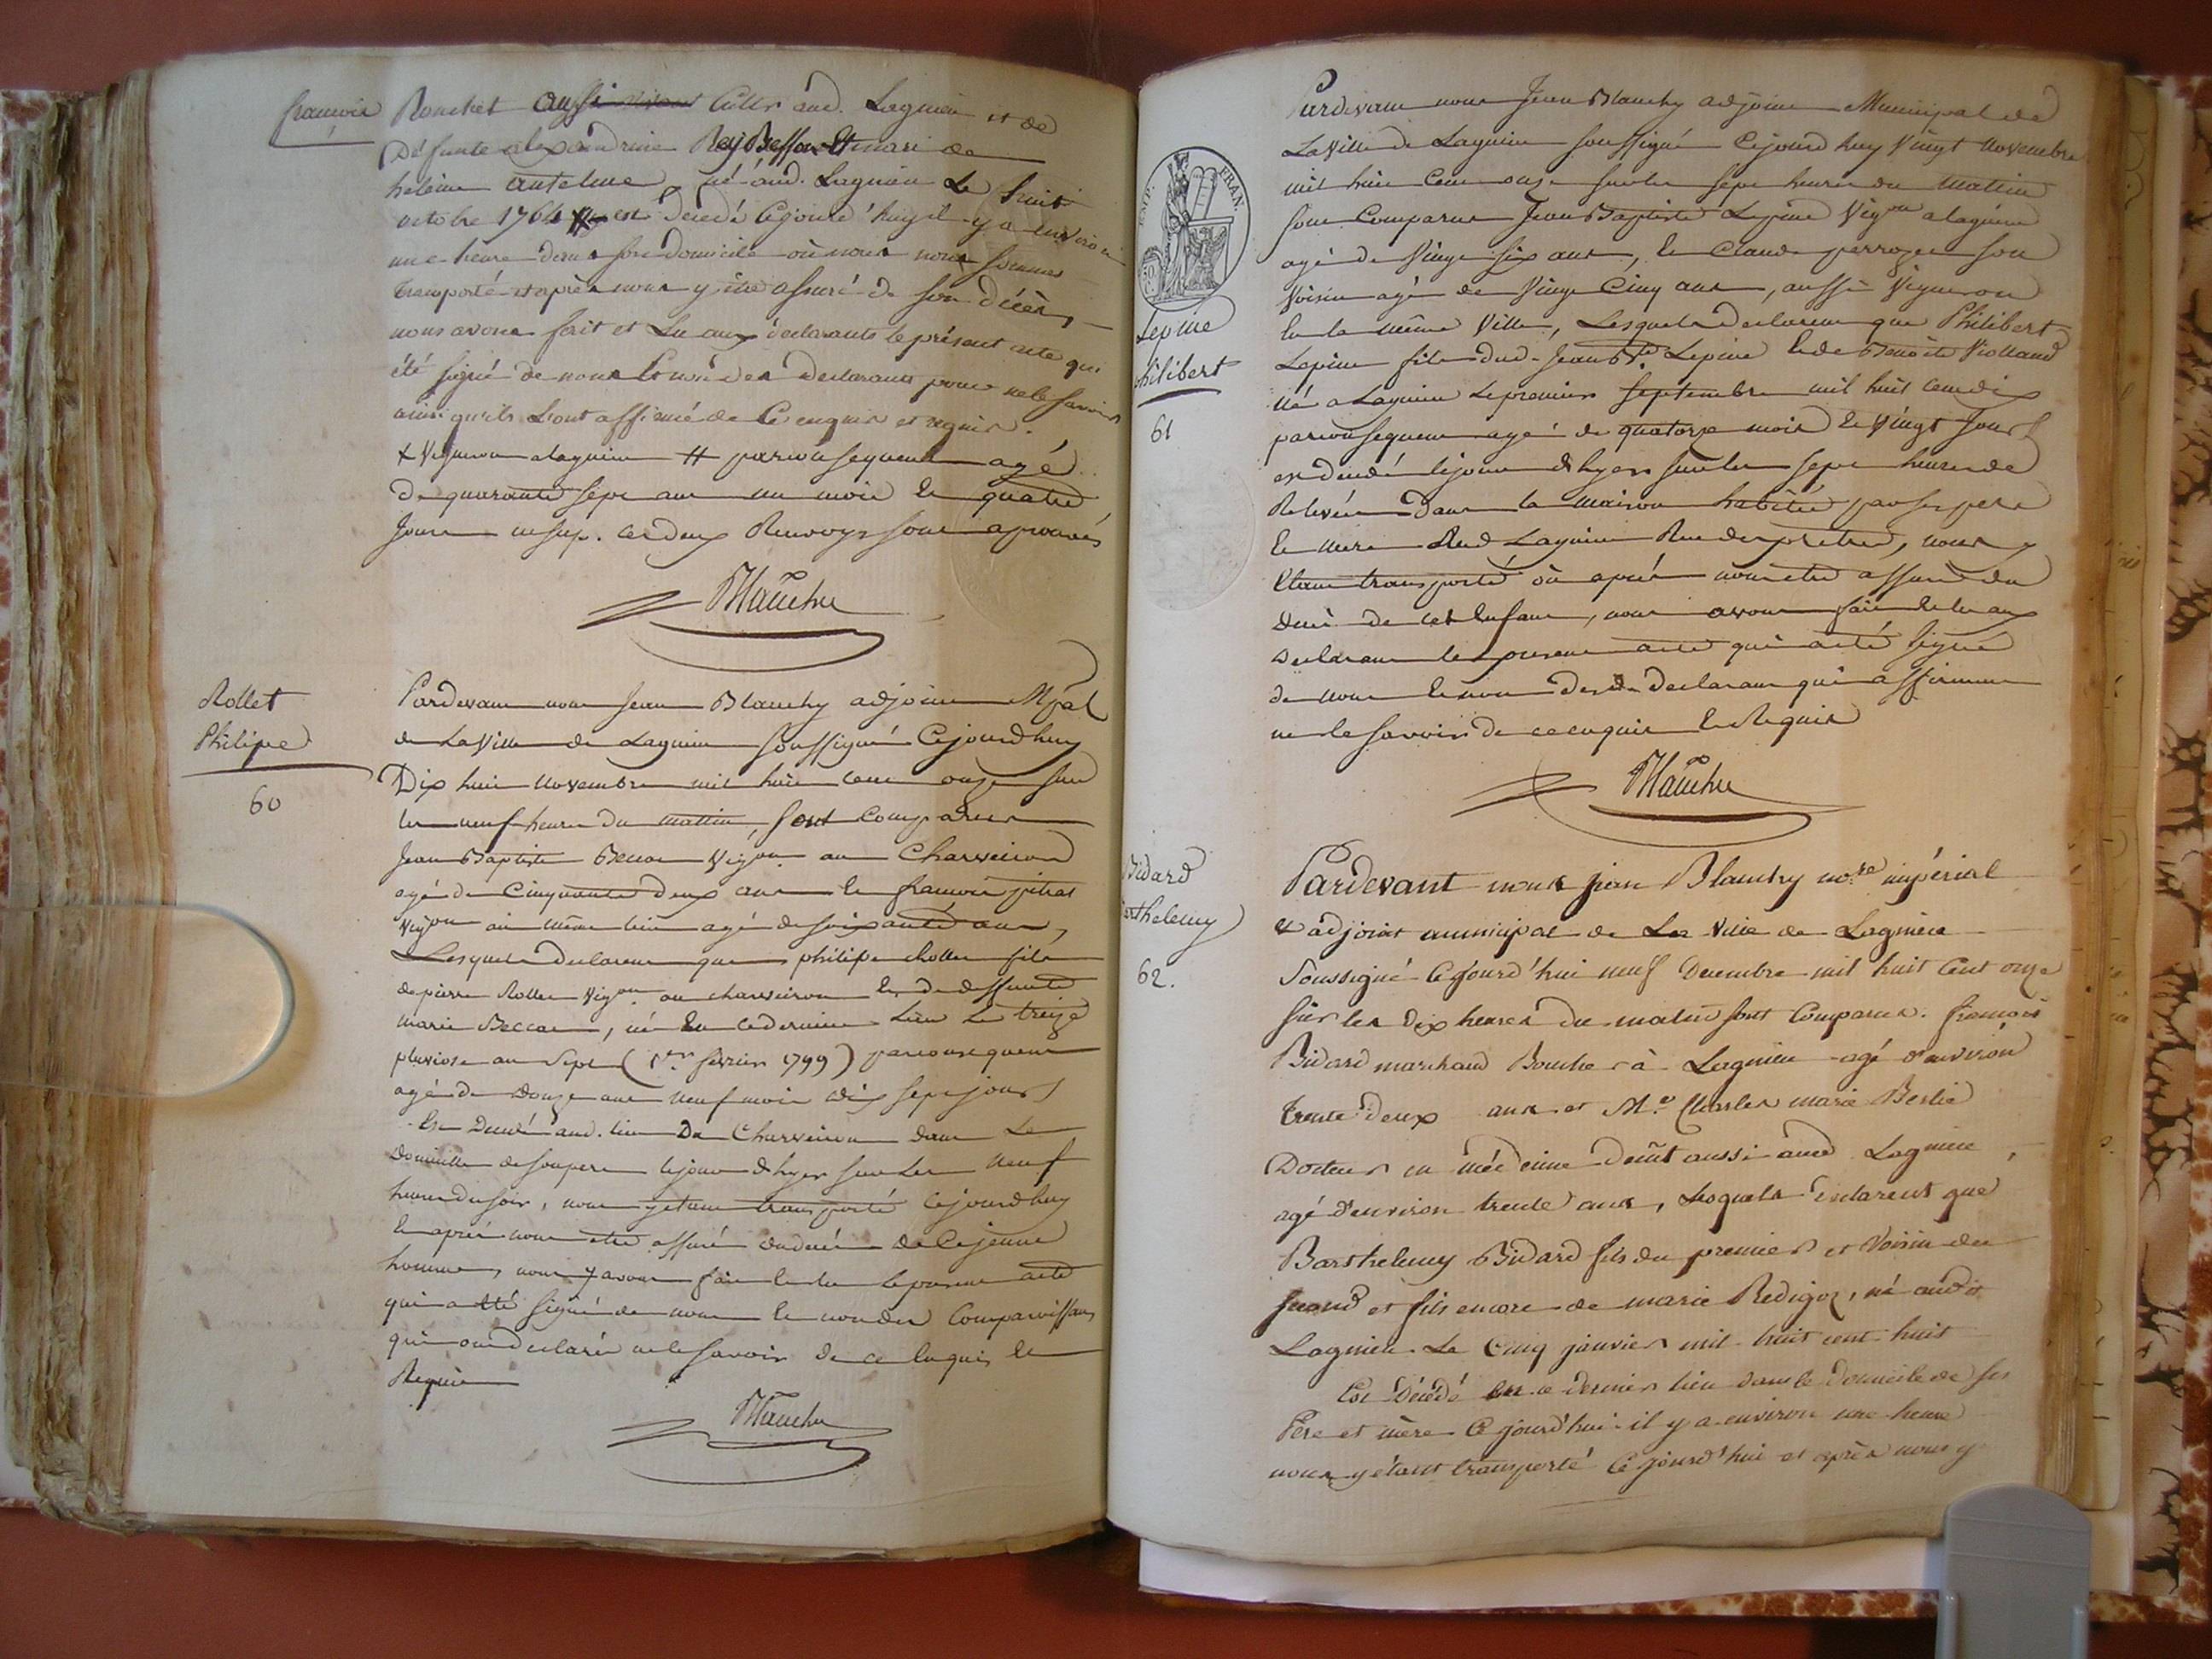 françois Ronchet aussi vivant Cultr aud. Lagnieu et de
Défunte alexandrine Rey Besson Et mari de
helène antelme, né aud. Lagnieu Le huit
octobre 1764 # est décédé Cejourd'huy il y a environ
une heure dans son domicile où nous nous sommes
transporté et après nous y être assuré de son décès,
nous avons fait et Lu aux déclarants le présent acte qui
été signé de nous Et non des déclarants pour ne le savoir
ainsi qu'ils L'ont affirmé de Ce enquis et requis.
x Vigneron a lagnieu # par conséquent agé
de quarante sept ans un mois et quatre
Jours ces deux Renvoys sont aprouvés
Blanchy
Rollet
Philipe
60
Pardevant nous Jean Blanchy adjoint Mpal
de La Ville de Lagnieu soussigné Cejourdhuy
Dix huit novembre mil huit cent onze sur
les neuf heures du mattin, sont comparus
Jean Baptiste Beccat Vigon au Charveiron
agé de Cinquante deux ans et françois pitrat
Vigon au même lieu agé de soixante ans,
Lesquels Declarent que philipe Rollet fils
de pierre Rollet Vigon au charveiron et de deffunte
marie Beccat, né En ce dernier Lieu Le treize
pluviose an Sept (1er fevrier 1799) par consequent
agé de Douze ans neuf mois dix sept jours
Est Decedé aud. lieu Du Charveiron dans Le
Domicille de son pere le jour d'hyer sur Les neuf
heures du soir, nous y etant transporté Cejourdhuy
et après nous etre assuré du decés de Ce jeune
homme, nous y avons fait et lu le present acte
qui a été signé de nous et non des Comparoissans
qui ont declaré ne le savoir de ce Enquis et
Requis
Blanchy
Pardevant nous Jean Blanchy adjoint Municipal de
La Ville de Lagnieu soussigné Cejourd huy Vingt novembre
mil huit Cent onze sur les sept heures du mattin
sont Comparus Jean Baptiste Lepine Vigon a lagnieu
agé de Vingt six ans, et Claude perrozet son
Voisin agé de Vingt Cinq ans, aussi Vigneron
En la même Ville, Lesquels Declarent que Philibert
Lepine fils dud. Jean Bte Lepine et de Benoite Violland
né a Lagnieu Le premier septembre mil huit cent dix
par consequent agé de quatorze mois et Vingt Jours
est decedé le jour d'hyer sur les sept heures de
Relevée Dans la maison habitée par ses pere
et mere Aud Lagnieu Rue des pretres, nous y
Etant transporté où après nous etre assuré du
Decés de cet Enfant, nous avons fait et lu aux
Declarans le present acte qui a été signé
de nous et non des Declarans qui affirment
ne le savoir de ce enquis et Requis
Blanchy
EMP. FRAN.
Lepine
Philibert
61
Bidard
Barthelemy
62.
Pardevant nous jean Blanchy nore impérial
& adjoint municipal de La Ville de Lagnieu
Soussigné Cejourd'hui neuf Decembre mil huit Cent onze
sur les dix heures du matin sont Comparus. françois
Bidard marchand Boucher à Lagnieu agé d'environ
trente deux ans et Mr Charles marie Berlié
Docteur en médecine demt aussi aud Lagnieu,
agé d'environ trente ans, Lesquels déclarent que
Barthelemy Bidard fils du premier et Voisin du
second et fils encore de marie Redigoz, né audit
Lagnieu Le Cinq janvier mil huit cent huit
Est Décédé en ce dernier lieu dans le Domicile de ses
Père et mère Cejourd'hui il y a environ une heure
nous y étant transporté Cejourd'hui et après nous y